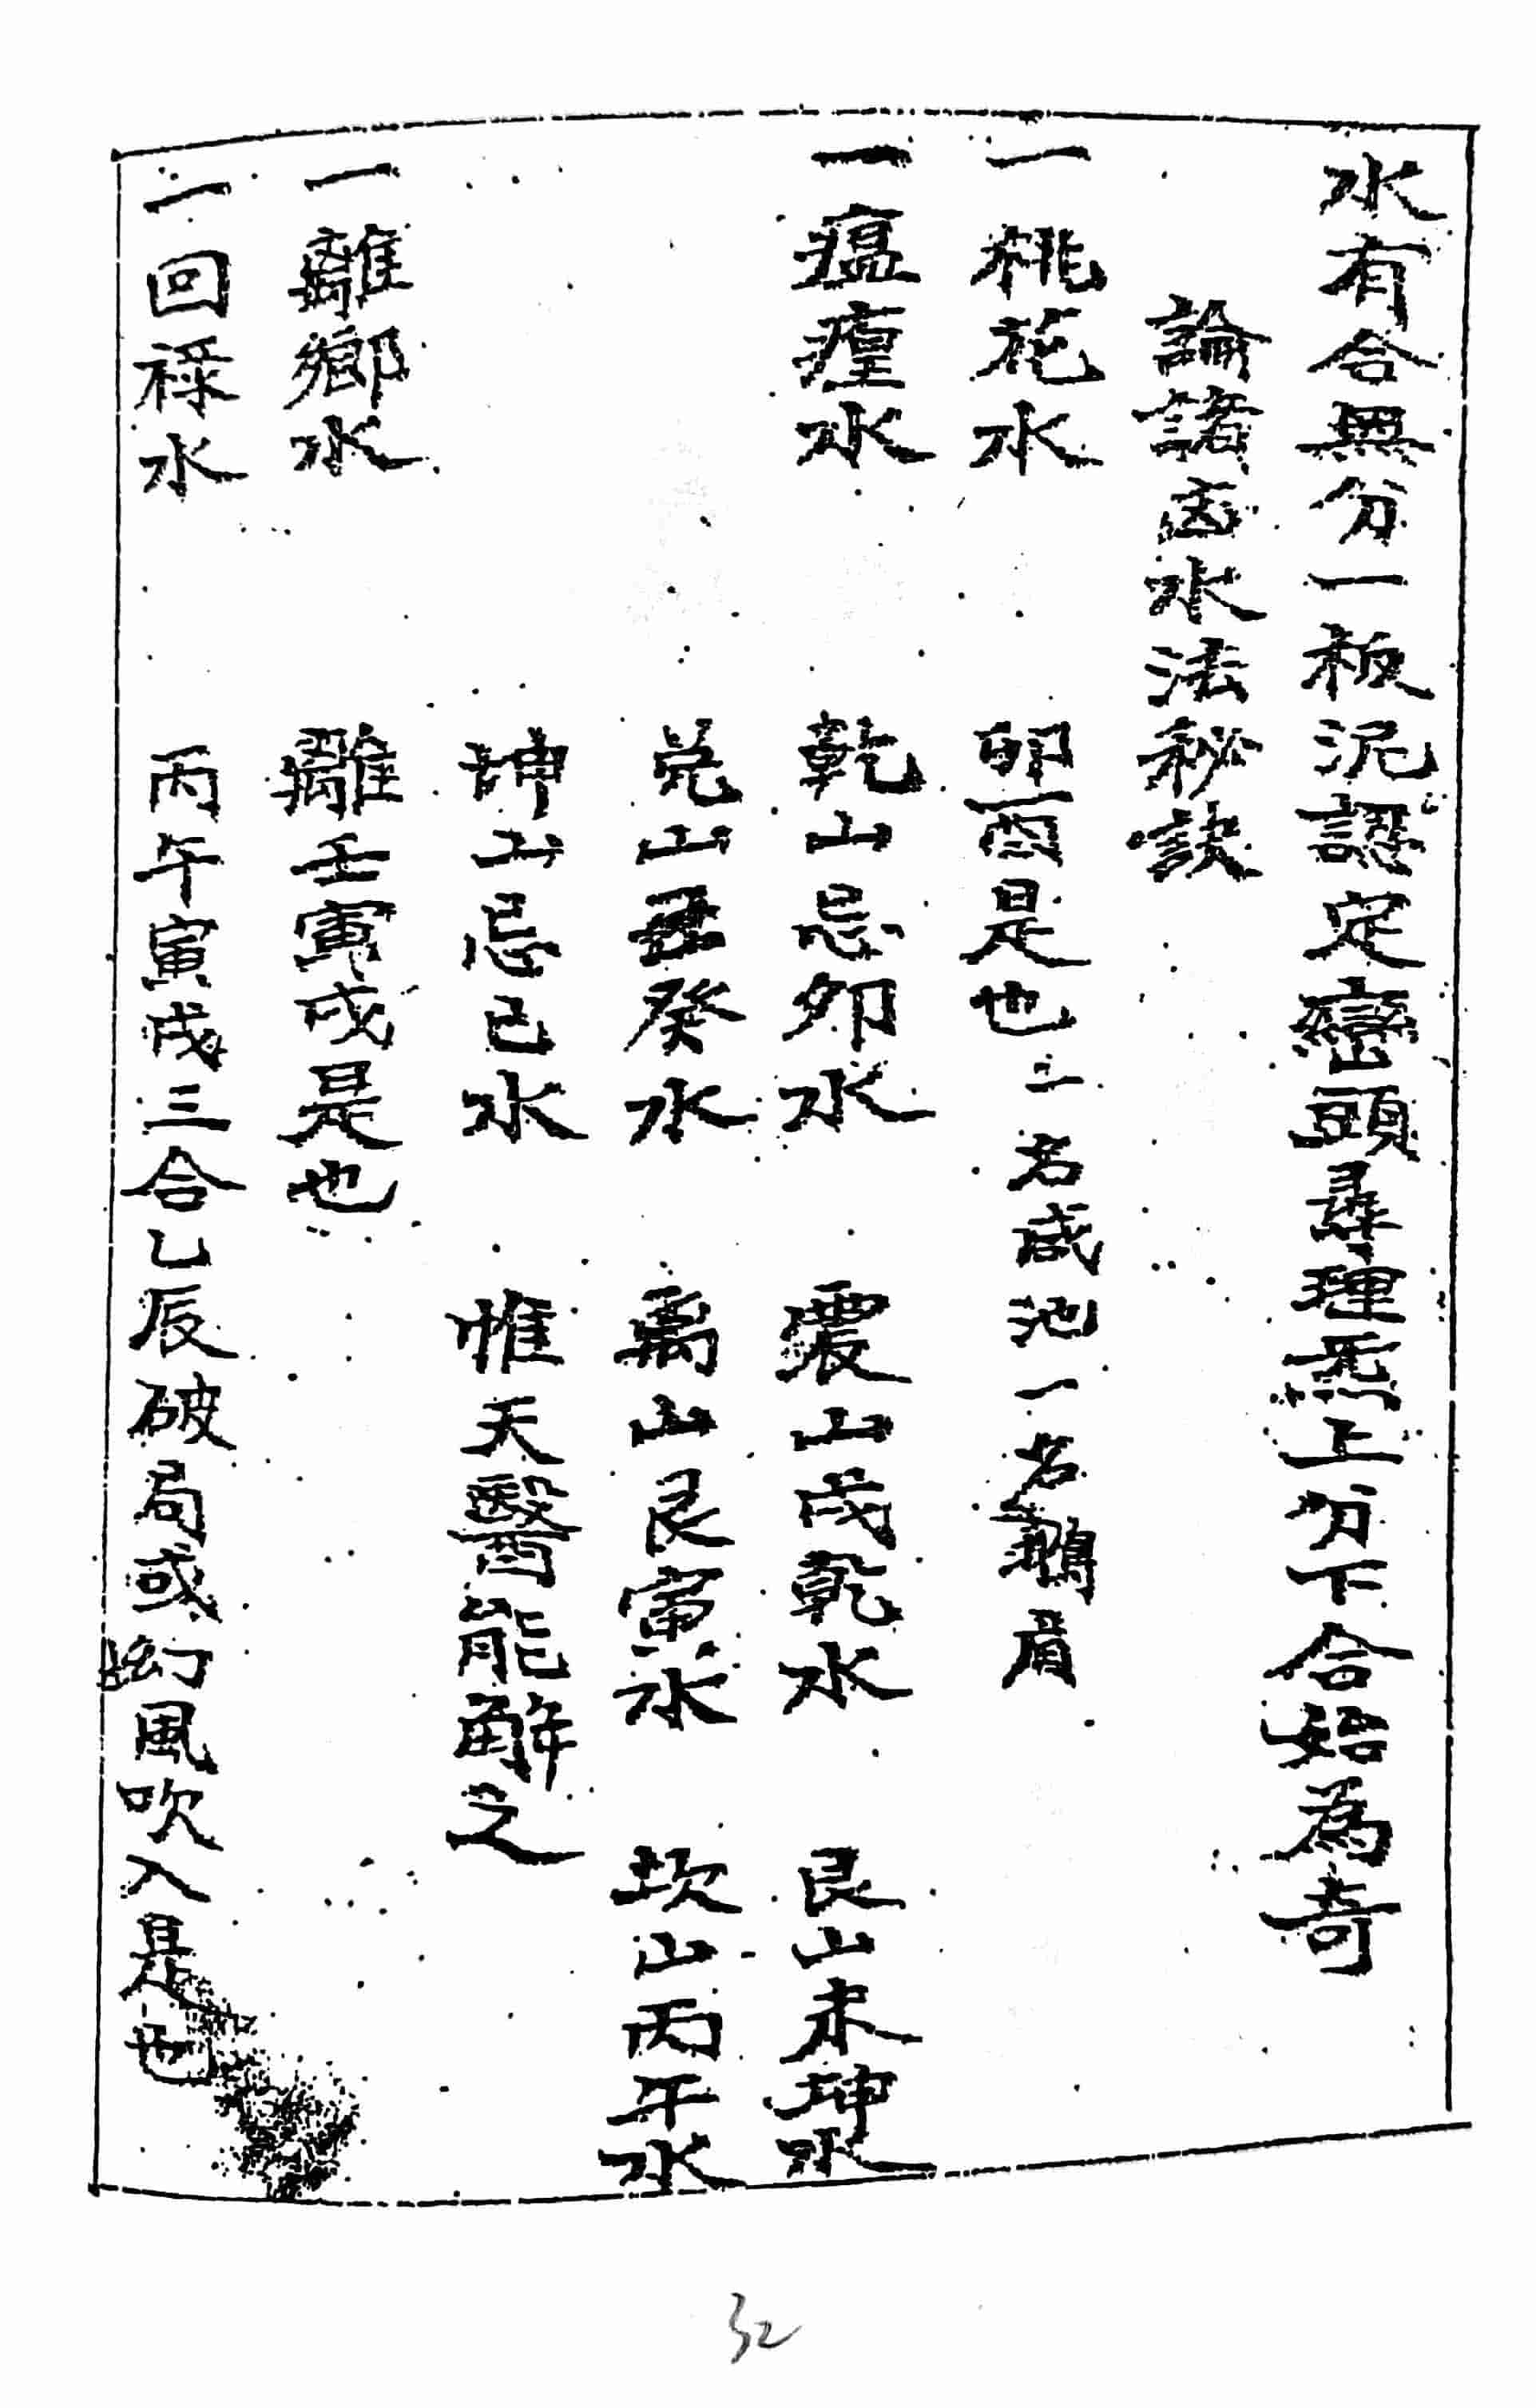 水有合無分一板泥認定巒頭尋理炁上分下合始為奇
論諸凶水法秘訣
一桃花水 卯酉是也 一名咸池一名鵝眉
一瘟㾮水 乾山忌卯水 震山戌乾水 艮山未坤水
兌山癸水 离山艮寅水 坎山丙午水
坤山忌巳水 惟天醫能解之
一離鄉水 離壬寅戌是也
一回祿水 丙午寅戌三合乙辰破局或風吹入是也
32